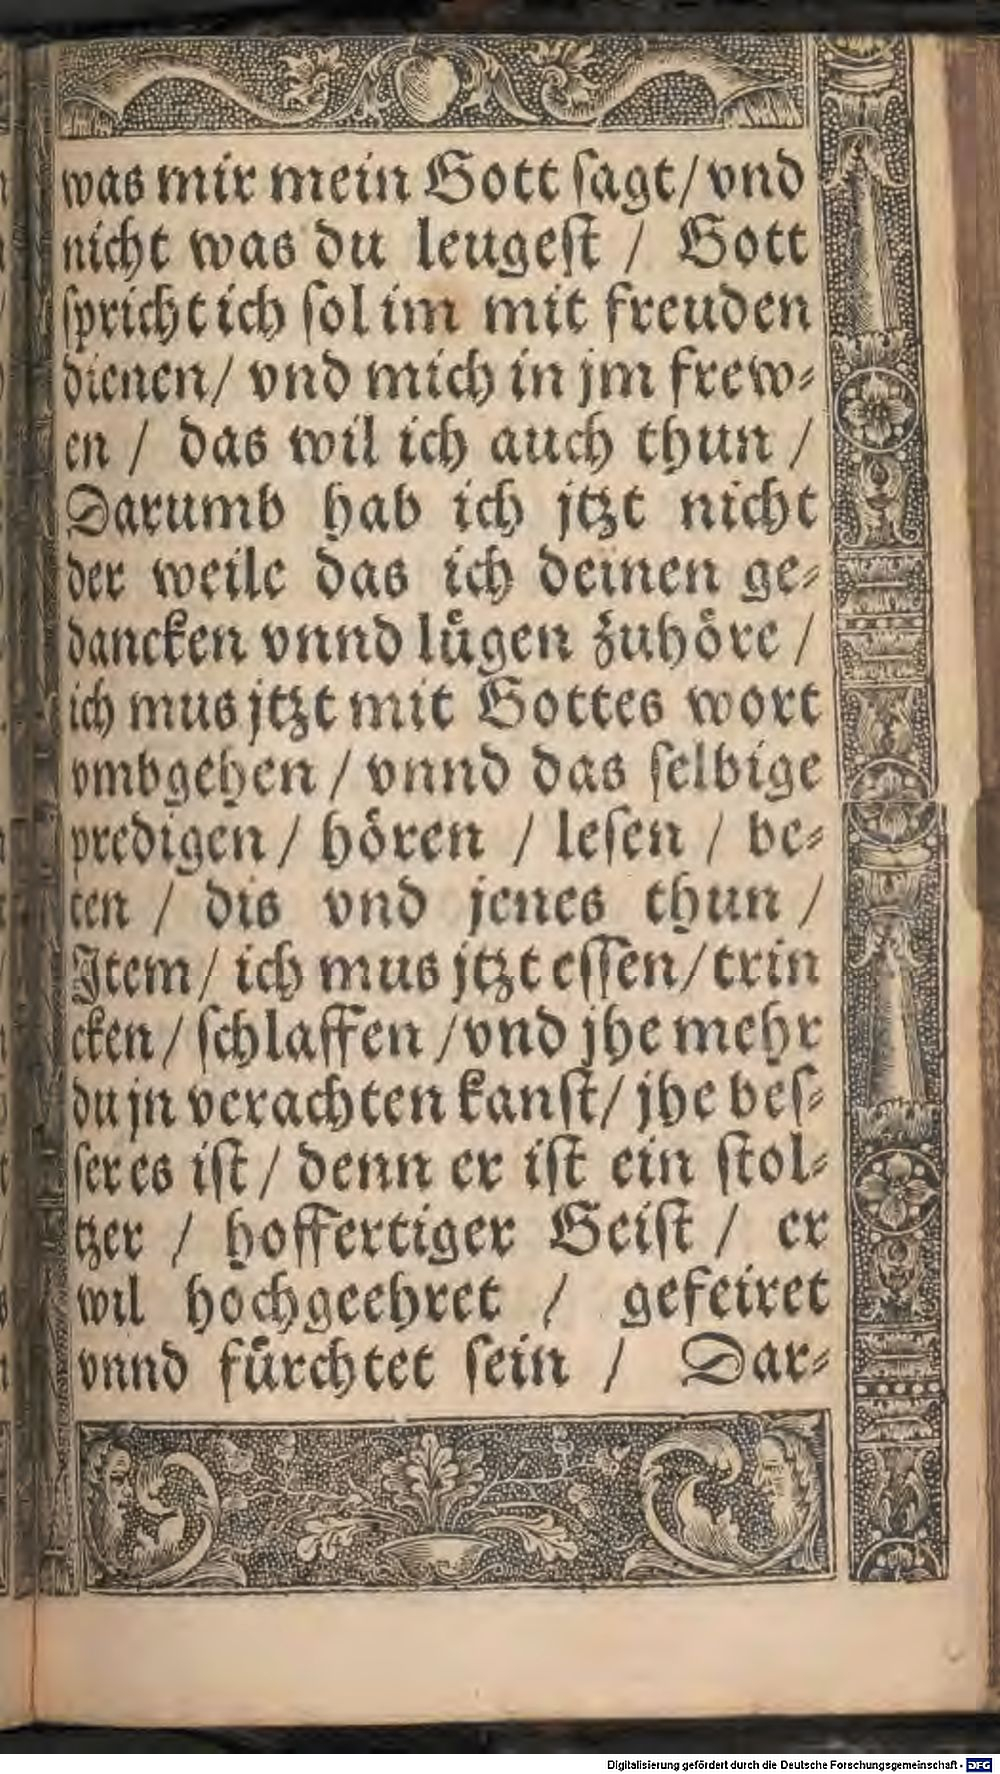 was mir mein Gott ſagt/ vnd
nicht was du leugeſt / Gott
ſpricht ich ſol im mit freuden
dienen/ vnd mich in jm frew⸗
en / das wil ich auch thun /
Darumb hab ich jtzt nicht
der weile das ich deinen ge⸗
dancken vnnd luͤgen zuhoͤre /
ich mus jtzt mit Gottes wort
vmbgehen / vnnd das ſelbige
predigen / hoͤren / leſen / be⸗
ten / dis vnd jenes thun /
Item / ich mus jtzt eſſen/ trin
cken / ſchlaffen / vnd jhe mehr
du jn verachten kanſt/ jhe beſ⸗
ſer es iſt / denn er iſt ein ſtol⸗
tzer / hoffertiger Geiſt / er
wil hochgeehret / gefeiret
vnnd fuͤrchtet ſein / Dar⸗
Digitalisierung gefördert durch die Deutsche Forschungsgemeinschaft - DFG